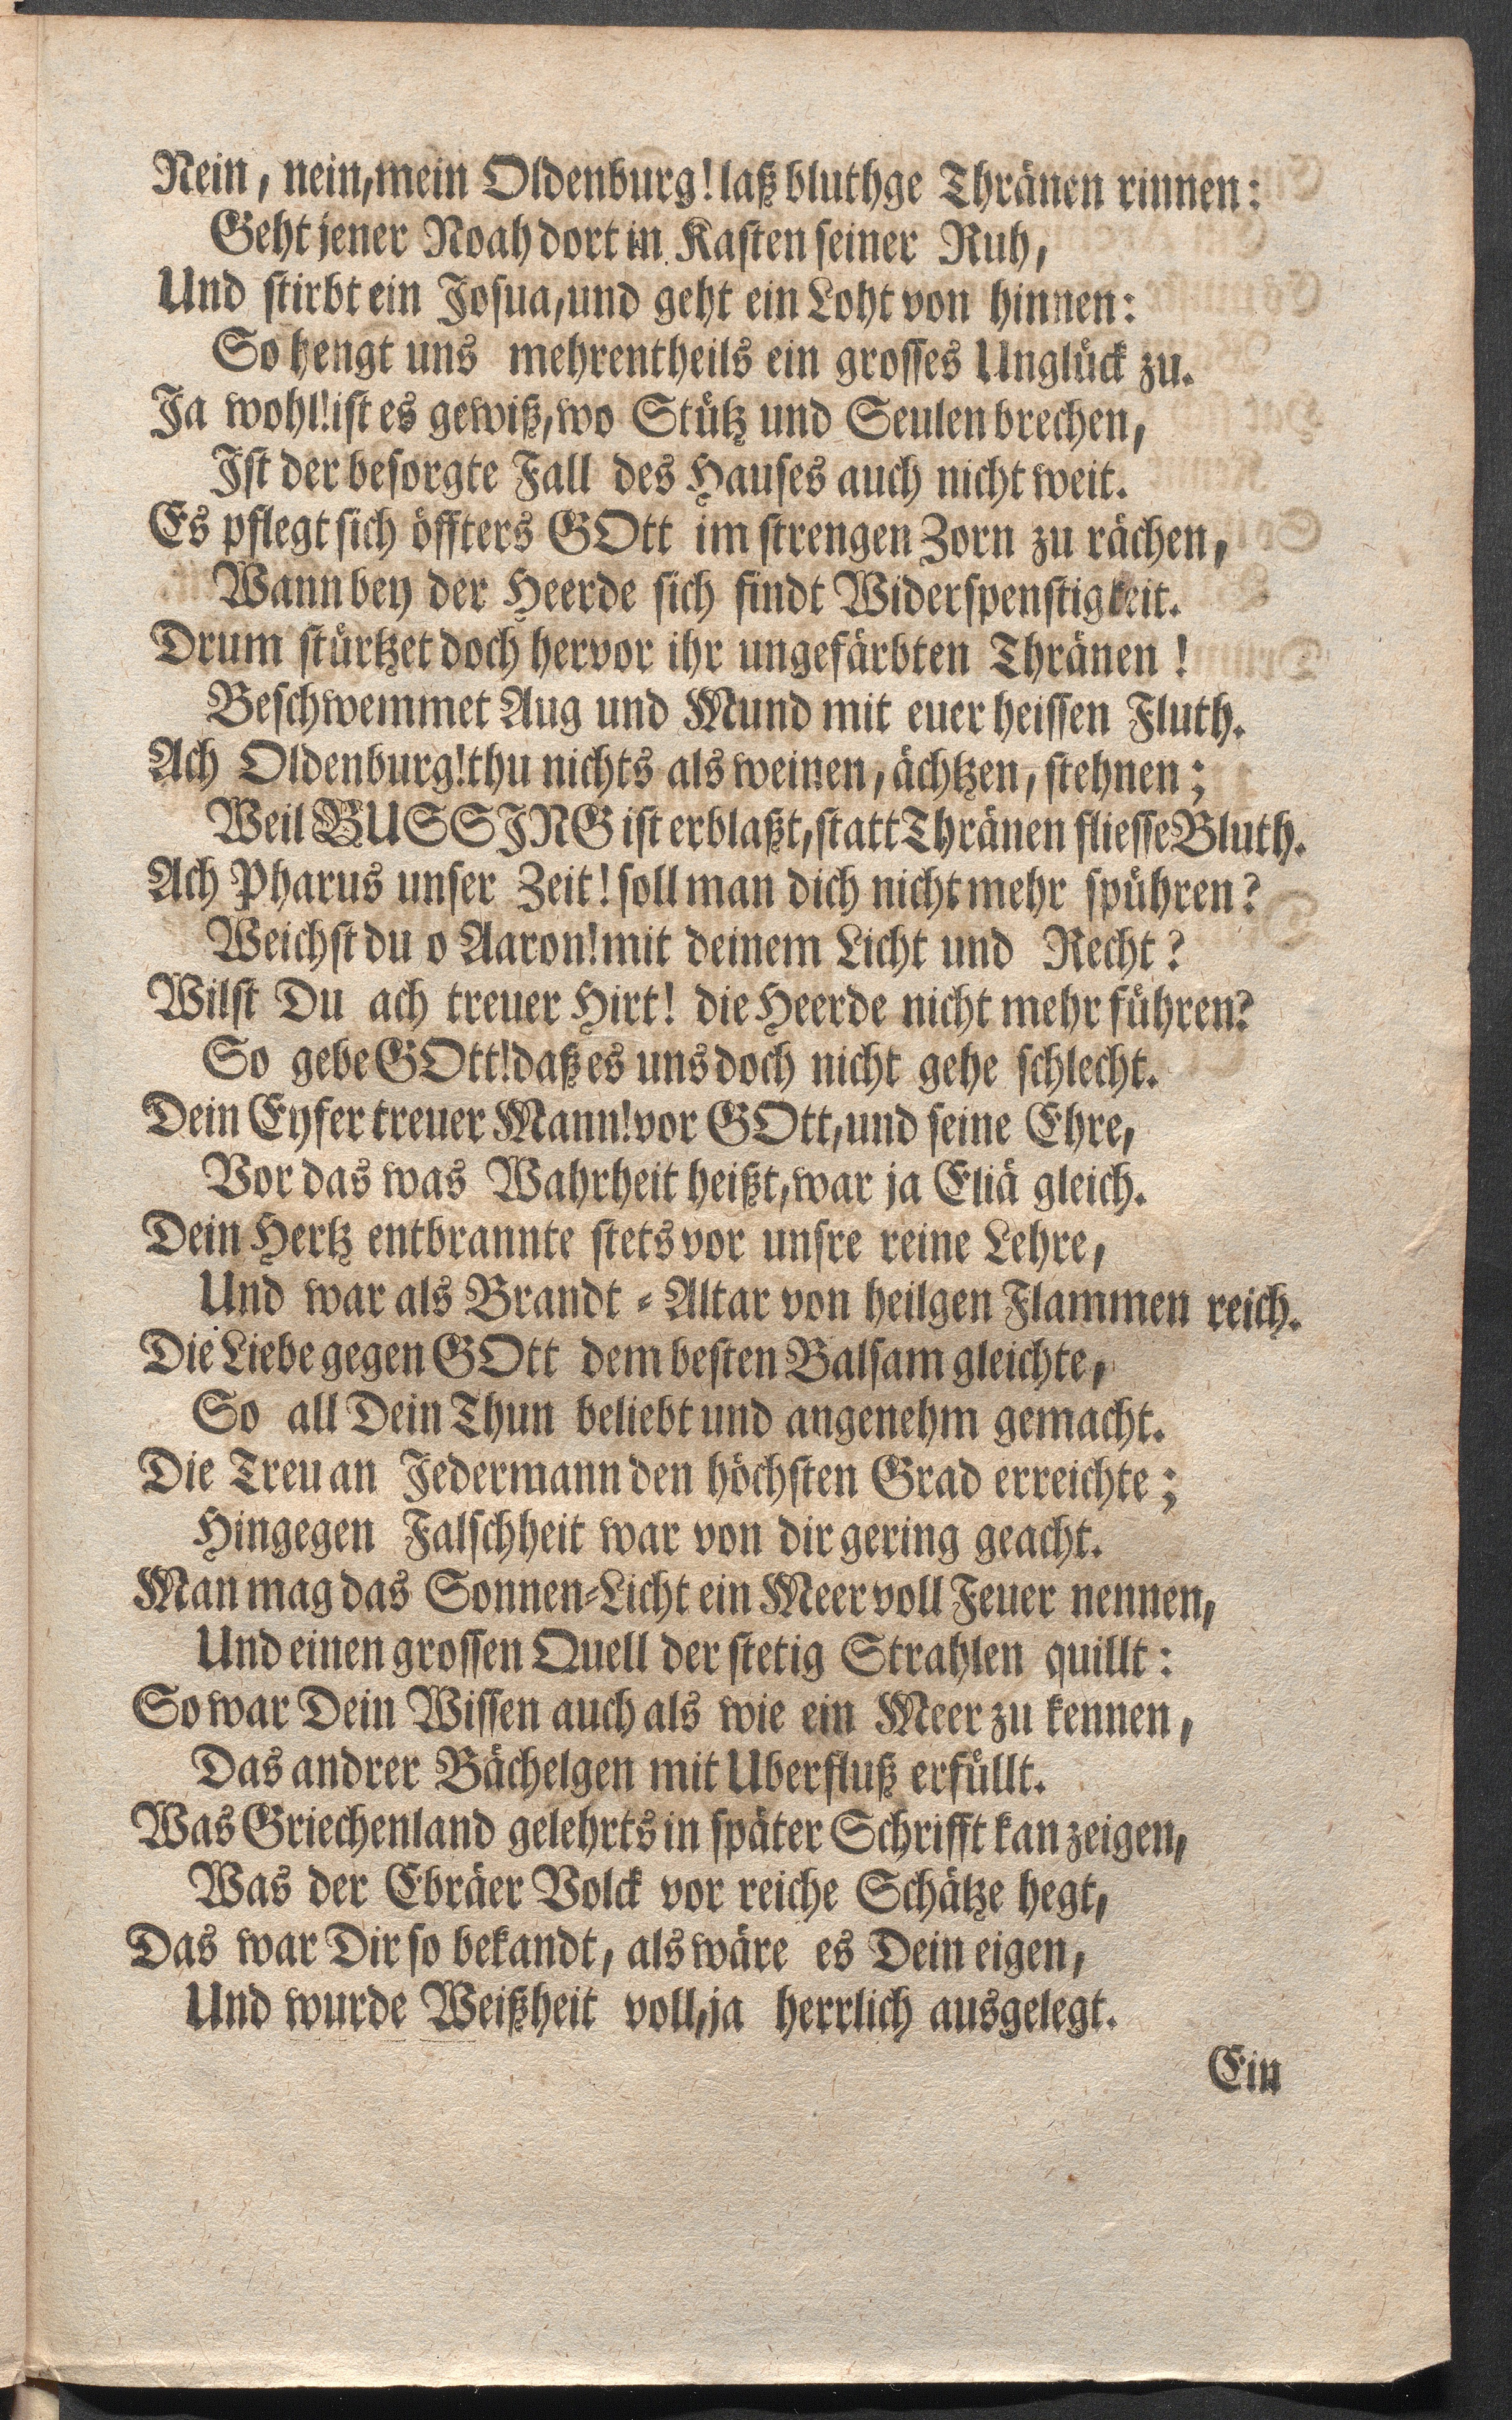 Nein, nein, mein Oldenburg! laß bluthge Thränen rinnen:
Geht jener Noah dort in Kasten seiner Ruh,
Und stirbt ein Josua, und geht ein Loht von hinnen:
So hengt uns mehrentheils ein grosses Unglück zu.
Ja wohl! ist es gewiß, wo Stütz und Seulen brechen,
Ist der besorgte Fall des Hauses auch nicht weit.
Es pflegt sich öffters GOtt im strengen Zorn zu rächen,
Wann bey der Heerde sich findt Widerspenstigkeit.
Drum stürtzet doch hervor ihr ungefärbten Thränen!
Beschwemmet Aug und Mund mit euer heissen Fluth.
Ach Oldenburg! thu nichts als weinen, ächtzen, stehnen;
Weil BUSSING ist erblaßt, statt Thränen fliesse Bluth.
Ach Pharus unser Zeit! soll man dich nicht mehr spühren?
Weichst du o Aaron! mit deinem Licht und Recht?
Wilst Du ach treuer Hirt! die Heerde nicht mehr führen?
So gebe GOtt! daß es uns doch nicht gehe schlecht.
Dein Eyfer treuer Mann! vor GOtt, und seine Ehre,
Vor das was Wahrheit heißt, war ja Eliä gleich.
Dein Hertz entbrannte stets vor unsre reine Lehre,
Und war als Brandt-Altar von heilgen Flammen reich.
Die Liebe gegen GOtt dem besten Balsam gleichte,
So all Dein Thun beliebt und angenehm gemacht.
Die Treu an Jedermann den höchsten Grad erreichte;
Hingegen Falschheit war von dir gering geacht.
Man mag das Sonnen-Licht ein Meer voll Feuer nennen,
Und einen grossen Quell der stetig Strahlen quillt:
So war Dein Wissen auch als wie ein Meer zu kennen,
Das andrer Bächelgen mit Uberfluß erfüllt.
Was Griechenland gelehrts in später Schrifft kan zeigen,
Was der Ebräer Volck vor reiche Schätze hegt,
Das war Dir so bekandt, als wäre es Dein eigen,
Und wurde Weißheit voll, ja herrlich ausgelegt.
Ein